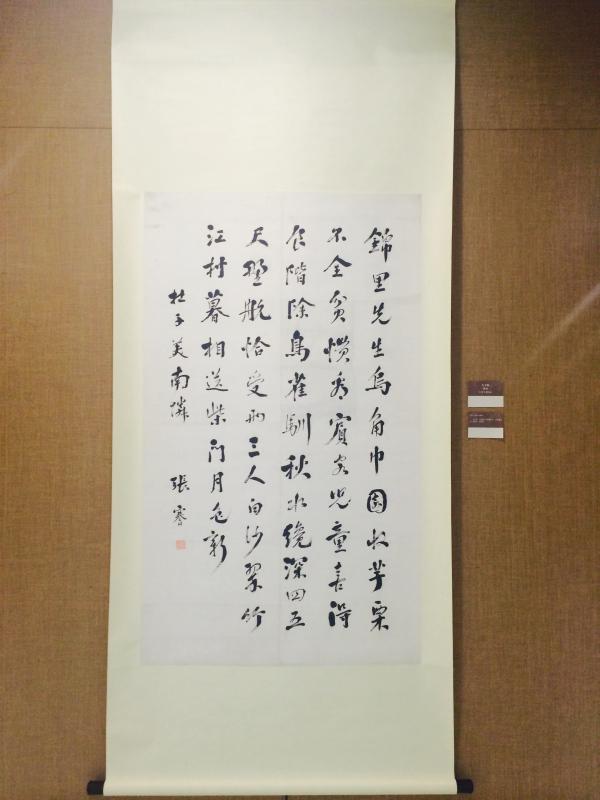 錦里先生烏角巾園收芋栗
不全貧慣看賓客兒童喜得
食階除鳥雀馴秋水纔深四五
尺野航恰受兩三人白沙翠竹
江村暮相送柴門月色新
杜子美南隣 張謇